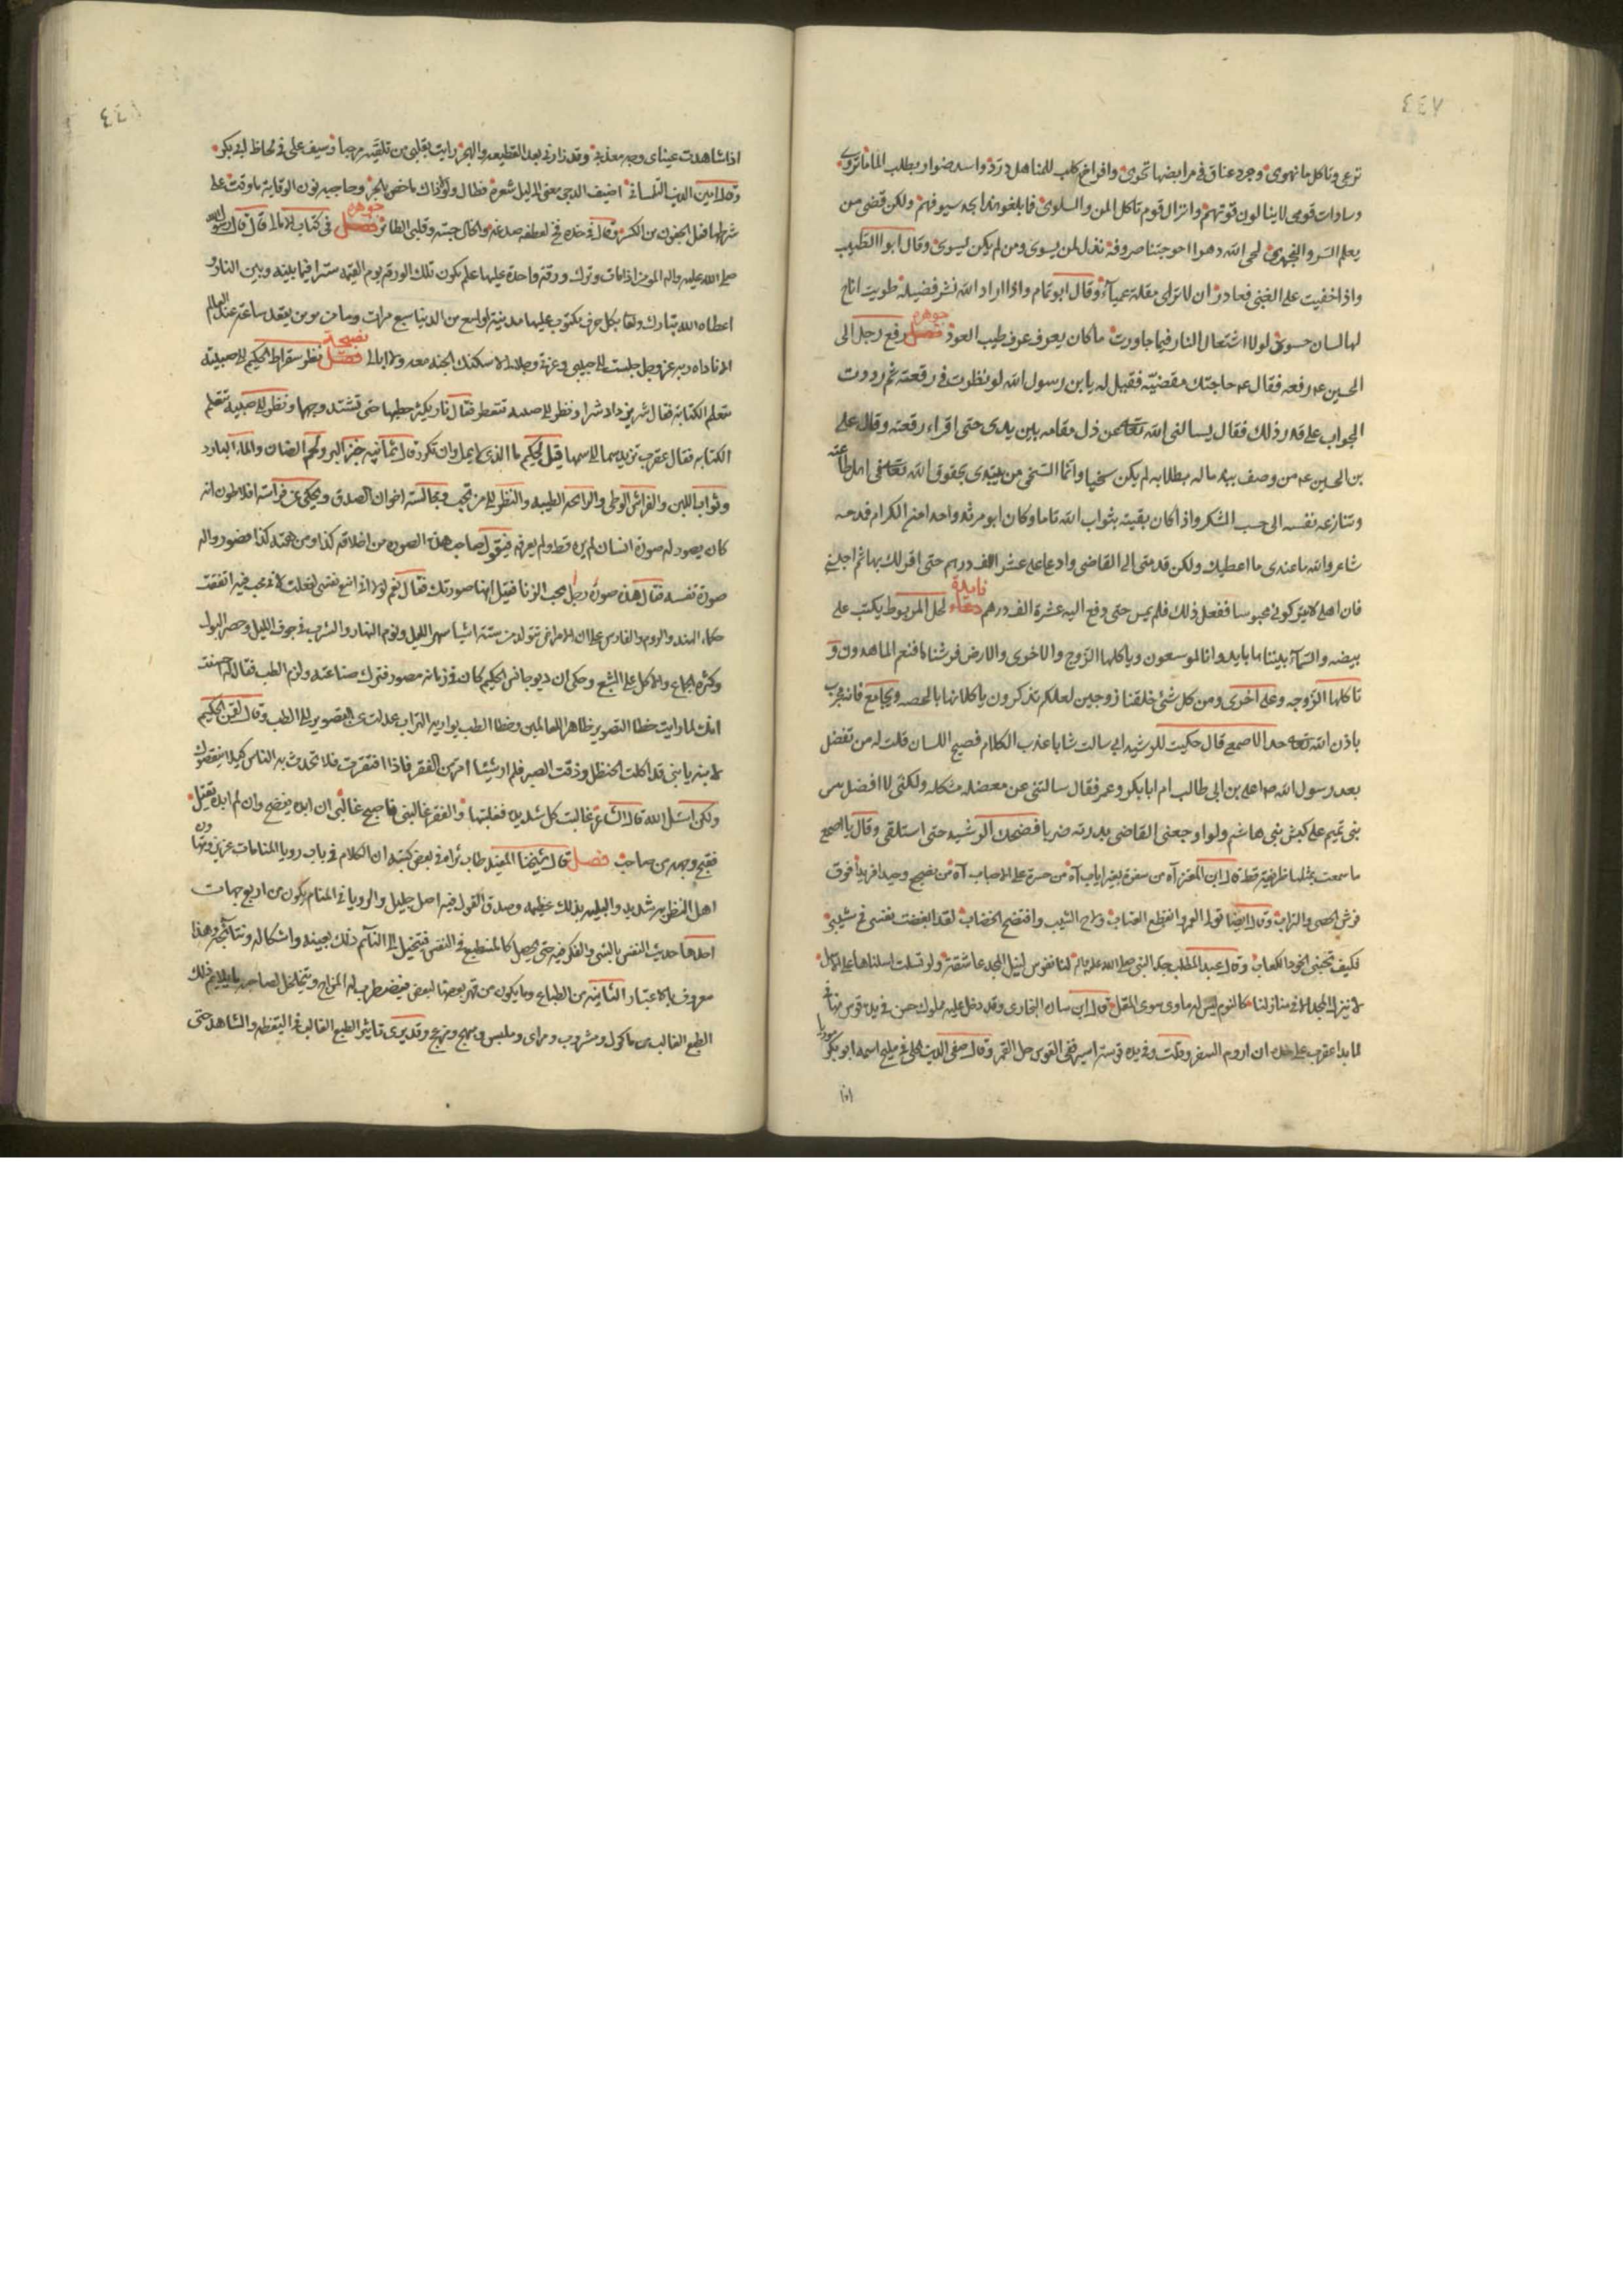 ٤٤٧
ترعى وتاكل ما تهوى وجرد عناق في مرابضها تحوى وافراخ كلب للمناهل وأسد ضواد يطلب الما ما تروى
وسادات قومى لا ينالون قوتهم وانزال قوم تاكل المن والسلوى فما بلغوا هذا بحد سيوفهم ولكن قضى من
يعلم السر والنجوى لحى الله دهرا احوجتنا صروفه نذل لمن يسوى ومن لم يكن يسوى وقال ابو الطيب
واذا خفيت على الغبى فعاذر ان لا تراني مقلة عمياء وقال ابو تمام واذا اراد الله نشر فضيلة طويت اتاح
لها لسان حسود لولا اشتعال النار فيما جاورت ما كان يعرف عرف طيب العود فصل جوهره رفع رجل الى
الحسين ع رقعه فقال ع حاجتك مقضيّة فقيل له يابن رسول الله لو نظرت في رقعته ثم رددت
الجواب على قدر ذلك فقال يسالنى الله تعالى عن ذل مقامه بين يدى حتى اقراء رقعته وقال على
بن الحسين ع من وصف ببذل ماله بطلابه لم يكن سخيا وانما السخى من يبتدى بحقوق الله تعالى في اهل طاعته
وتنازعه نفسه الى حب الشكر واذا كان يقينه بثواب الله تاما وكان ابو مرثد واحدا من الكرام فمدحه
شاعر والله ما عندى ما اعطيك ولكن قدمنى الى القاضى وادعا على عشر الف درهم حتى اقر لك بها ثم احبسنى
فان اهلى لا يتركونى محبوسا ففعل ذلك فلم يمس حتى دفع اليه عشرة الف درهم دعاء فايدة لحل المربوط يكتب على
بيضه والسماء بنيناها باييد وانا لموسعون وياكلها الزوج والاخرى والارض فرشناها فنعم الماهدون و
تاكلها الزوجه وعلى اخرى ومن كل شئ خلقنا زوجين لعلكم تذكرون ياكلانها بالحصه ويجامع فانه مجرب
باذن الله تعالى حد الاصمعى قال حكيت للرشيد انى سالت شابا عذب الكلام فصيح اللسان قلت له من تفضل
بعد رسول الله ص اعلى بن ابى طالب ام ابابكر وعمر فقال سالتنى عن معضله مشكله ولكنى لا افضل تيس
بنى تميم على كبش بنى هاشم ولو اوجعنى القاضى بدرته ضربا فضحك الرشيد حتى استلقى وقال يا اصمعى
ما سمعت بمثلها ظريفة قط قال ابن المعتز آه من سفرة بغير اياب آه من حسرة على الاحباب آه من مضجع وحيدا فريدا فوق
فرش الحصى والتراب وقال ايضا تولى العمر وانقطع العتاب ولاح الشيب وافتضح الخضاب لقد ابغضت نفسى في مشيبى
فكيف تحبنى الخود الكعاب وقال عبد المطلب جد النبى صلى الله عليه واله لنا نفوس لنيل المجد عاشقة ولو تسلت اسلناها على الاسل
لا ينزل المجد الا في منازلنا كالنوم ليس له ماوى سوى المقل قال ابن سان البخارى وقد دخل عليه مملوك حسن في يده قوس
لما بدا عقرب على خده ان اروم السفر وقلت وفي يده قوسه اسير ففى القوس حل القمر وقال صفى الدين الحلى في مليح اسمه ابو بكر
اذا
٤٤٨
اذا شاهدت عيناى وجه معذبى وقد زارنى بعد القطيعه والهجر رايت بقلبى من تلقيه مرحبا وسيف على في لحاظ ابى بكر
وقال امين الدين التلمسانى اضيف الدجى معنى الى ليل شعره فطال ولولا ذاك ما خص بالجر وحاجبه نون الوقاية ما وقت على
شرطها فعل الجفون من الكسر وقال في خده فخ لعطفه صدغه والخال حبته وقلبى الطائر فصل جوهره في كتاب الامالى قال قال رسول الله
صلى الله عليه واله المومن اذا مات وترك ورقة واحدة عليها علم تكون تلك الورقة يوم القيمة سترا فيما بينه وبين النار و
اعطاه الله تبارك وتعا بكل حرف مكتوب عليها مدينة اوسع من الدنيا سبع مرات وما من مومن يقعد ساعة عند العالم
الا ناداه ربه عز وجل جلست الى حبيبى وعزتى وجلالى لاسكننك الجنة معه ولا ابالى فصل نصيحة نظر سقراط الحكيم الى صبية
تتعلم الكتابة فقال شر يزداد شرا ونظر الى صبية تتعطر فقال نار يكثر حطبها حتى تشتد وجها ونظر الى صبية تتعلم
الكتابه فقال عقرب تزيد سما الى سمها قيل لحكيم ما الذى لا يمل وان تكرر قال ثمانيه خبز البر ولحم الضان والماء البارد
وثواب اللين والفراش الوطى والرائحه الطيبه والنظر الى من تحب ومجالسة اخوان الصدق ويحكى عن فراسة افلاطون انه
كان يصور له صورة انسان لم يره قط ولم يعرفه فيقول صاحب هذه الصوره من اخلاقه كذا ومن همته كذا فصور واله
صورة نفسه فقال هذه صورة رجل محب الزنا فقيل انها صورتك فقال نعم لولا انى امنع نفسى لفعلت لانى محب فيه اتفقت
حكماء الهند والروم والفارس على ان الامراض تتولد من ستة اشيا سهر الليل ونوم النهار والشرب في جوف الليل وحصر البول
وكثرة الجماع والاكل على الشبع وحكى ان ديوجانس الحكيم كان في زمانه مصور فترك صناعته ولزم الطب فقال له احسنت
انك لما رايت خطا التصوير ظاهرا للعالمين وخطا الطب يواريه التراب عدلت عن التصوير الى الطب وقال لقمن الحكيم
لابنه يا بنى قد اكلت الحنظل وذقت الصبر فلم ار شيئا امر من الفقر فاذا افتقرت فلا تحدث به الناس كيلا ينقصوك
ولكن اسئل الله قال الشاعر غالبت كل شديدة فغلبتها والفقر غالبنى فاصبح غالبى ان ابده يفضح وان لم ابده يقتل
فقبح وجهه من صاحب فصل قال شيخنا المفيد طاب ثراه في بعض كتبه ان الكلام في باب رويا المنامات عزيز وتهاون
اهل النظر به شديد والبليه بذلك عظيمه وصدق القول فيه اصل جليل والرويا في المنام يكون من اربع جهات
احدها حديث النفس بالشى والفكر فيه حتى يحصل كالمنطبع في النفس فيتخيل الى النائم ذلك بعينه واشكاله ونتائجه وهذا
معروف بالاعتبار الثانيه من الطباع وما يكون من قهر بعضها لبعض فيضطرب له المزاج ويتخيل لصاحبه ما يلائم ذلك
الطبع الغالب من ماكول ومشروب ومراى وملبس ومبهج ومزعج وقد يرى تاثير الطبع الغالب في اليقظه والشاهد حتى